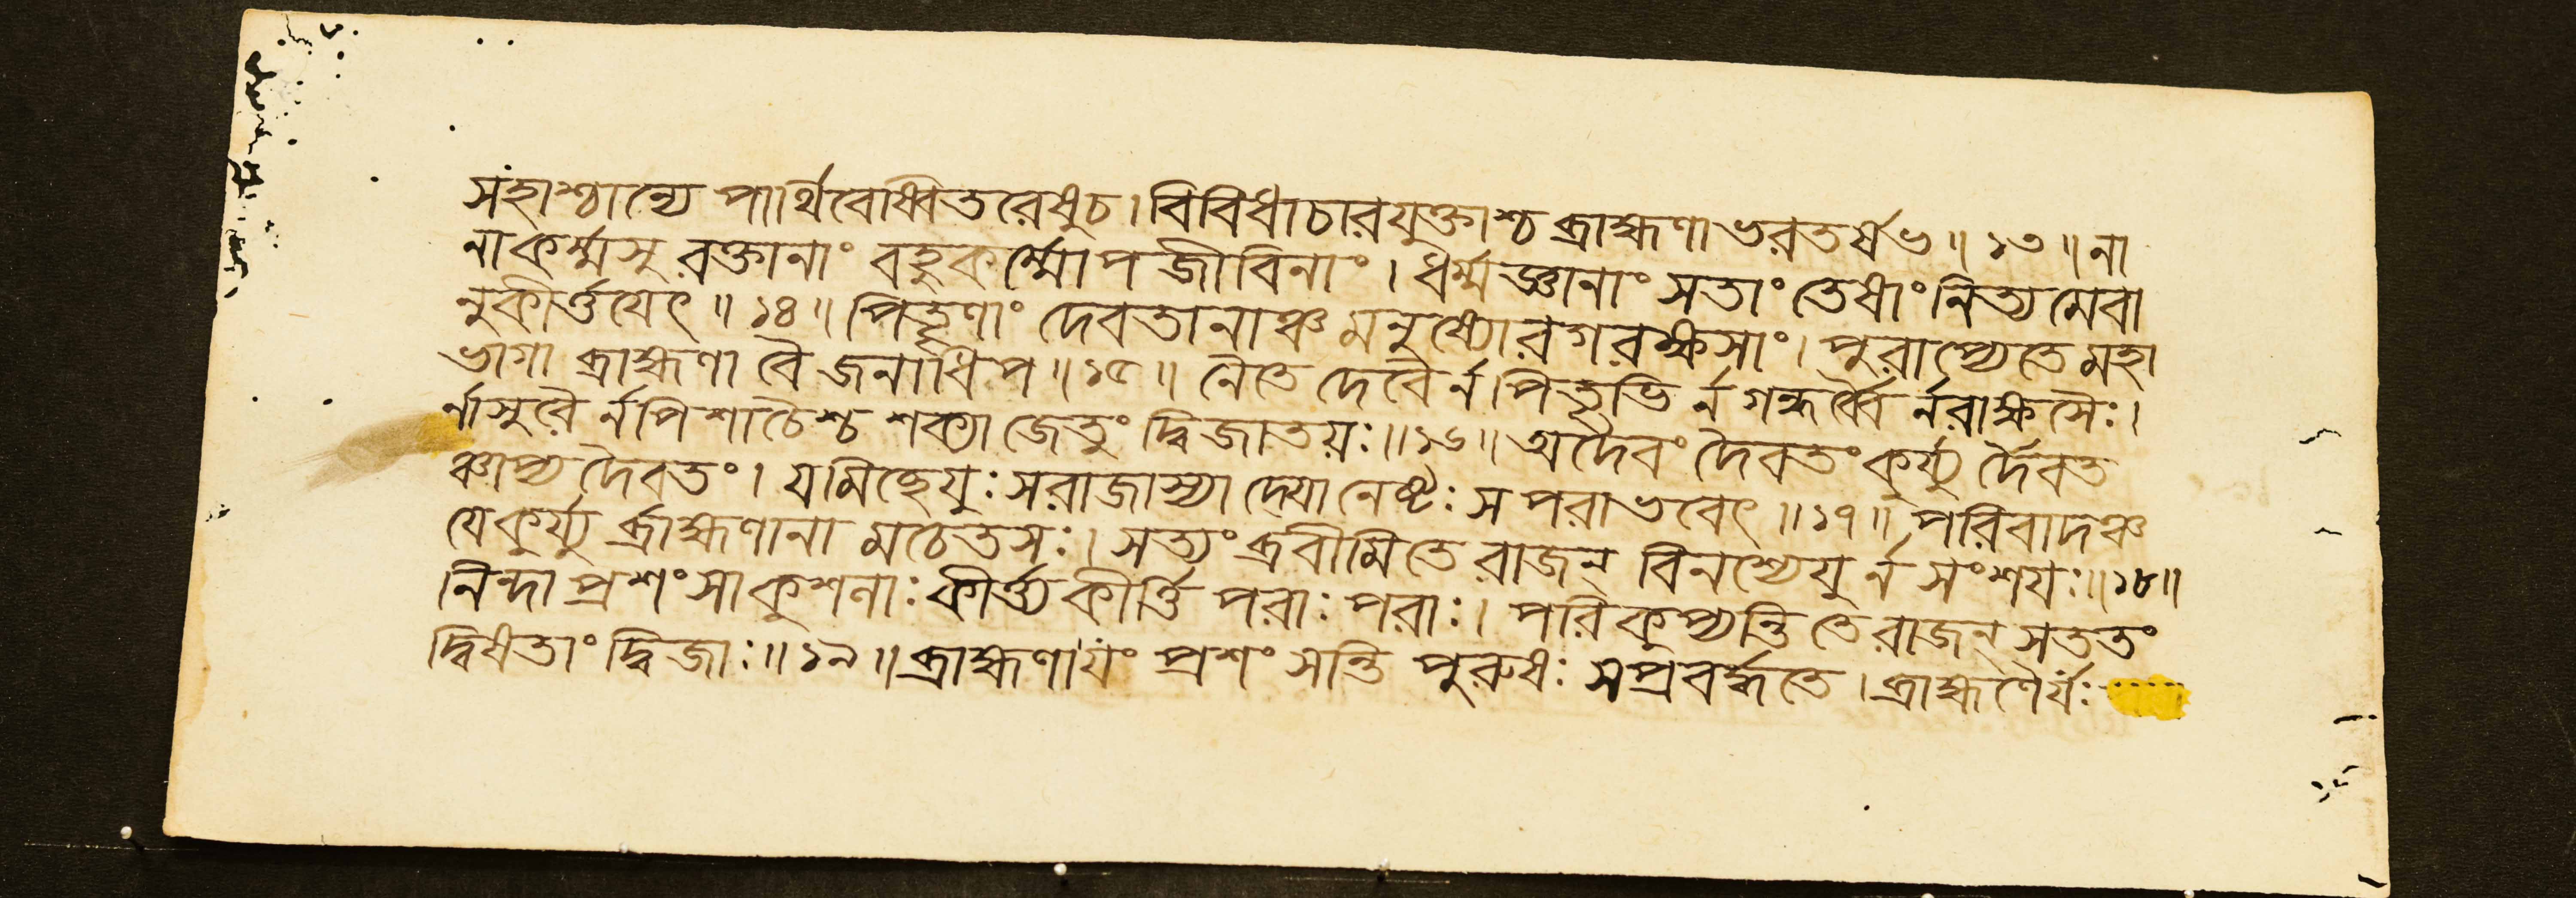 সংহাশ্চান্যে পার্থিবেষ্বিতরেষুচ। বিবিধাচারযুক্তাশ্চ ব্রাহ্মণা ভরতর্ষভ॥ ১৩॥ না
নাকর্ম্মসু রক্তানাং বহুকর্ম্মোপজীবিনাং। ধর্ম্মজ্ঞানাং সতাং তেষাং নিত্যমেবা
নুকীর্ত্তয়েৎ॥ ১৪॥ পিতৄণাং দেবতানাঞ্চ মনুষ্যোরগরক্ষসাং। পুরাপ্যেতে মহা
ভাগা ব্রাহ্মণা বৈ জনাধিপ॥ ১৫॥ নৈতে দেবৈর্ন পিতৃভির্ন গন্ধর্ব্বৈর্নরাক্ষসৈঃ।
র্নাসুরৈর্নপিশাচৈশ্চ শক্যা জেতুং দ্বিজাতয়ঃ॥ ১৬॥ অদৈবং দৈবতং কুর্য্যুর্দৈবত
ঞ্চাপ্যদৈবতং। যমিচ্ছেয়ুঃ সরাজাস্যাদ্দেয়ানেষ্টঃ স পরাভবেৎ॥ ১৭॥ পরিবাদঞ্চ
যেকুর্য্যুর্ব্রাহ্মণানামচেতসঃ। সত্যং ব্রবীমিতে রাজন্ বিনশ্যেয়ুর্ন সংশয়ঃ॥ ১৮॥
নিন্দাপ্রশংসাকুশনাঃ কীর্ত্ত্যকীর্ত্তি পরাঃ পরাঃ। পরিকুপ্যন্তি তে রাজন্ সততং
দ্বিষতাং দ্বিজাঃ॥ ১৯॥ ব্রাহ্মণাযং প্রশংসন্তি পুরুষঃ সপ্রবর্দ্ধতে। ব্রাহ্মণৈর্যঃ